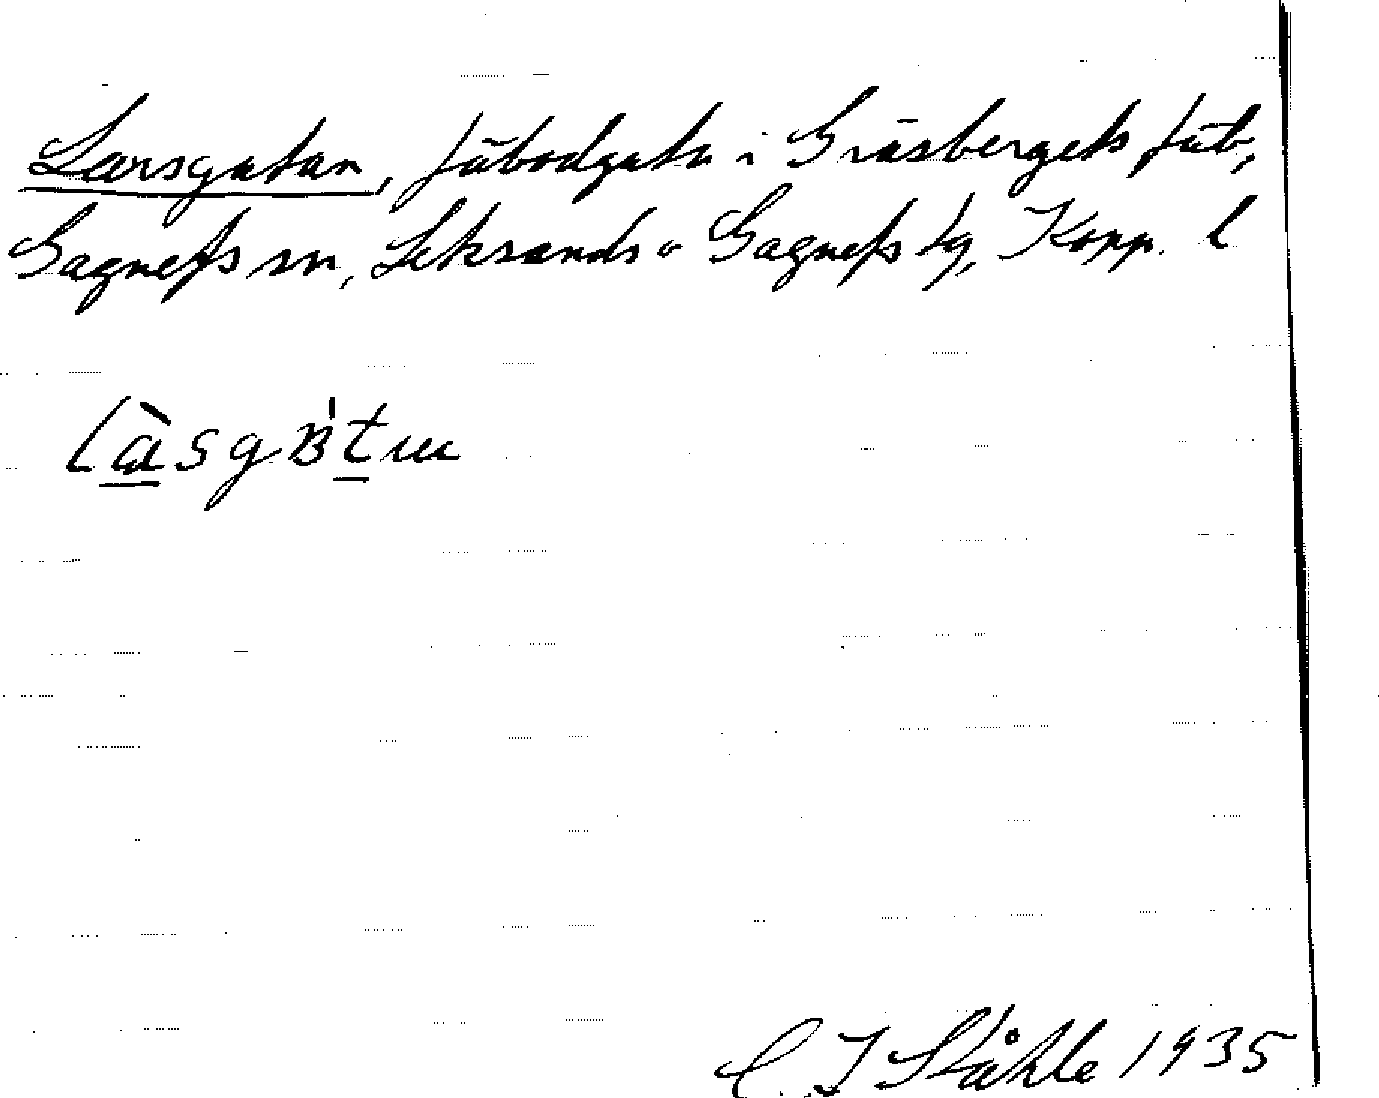 Larsgatan, fäbodgata i Gräsbergets fäb,
Gagnefs sn, Leksands o Gagnefs tg, Kopp. l
C. I Ståhle 1935